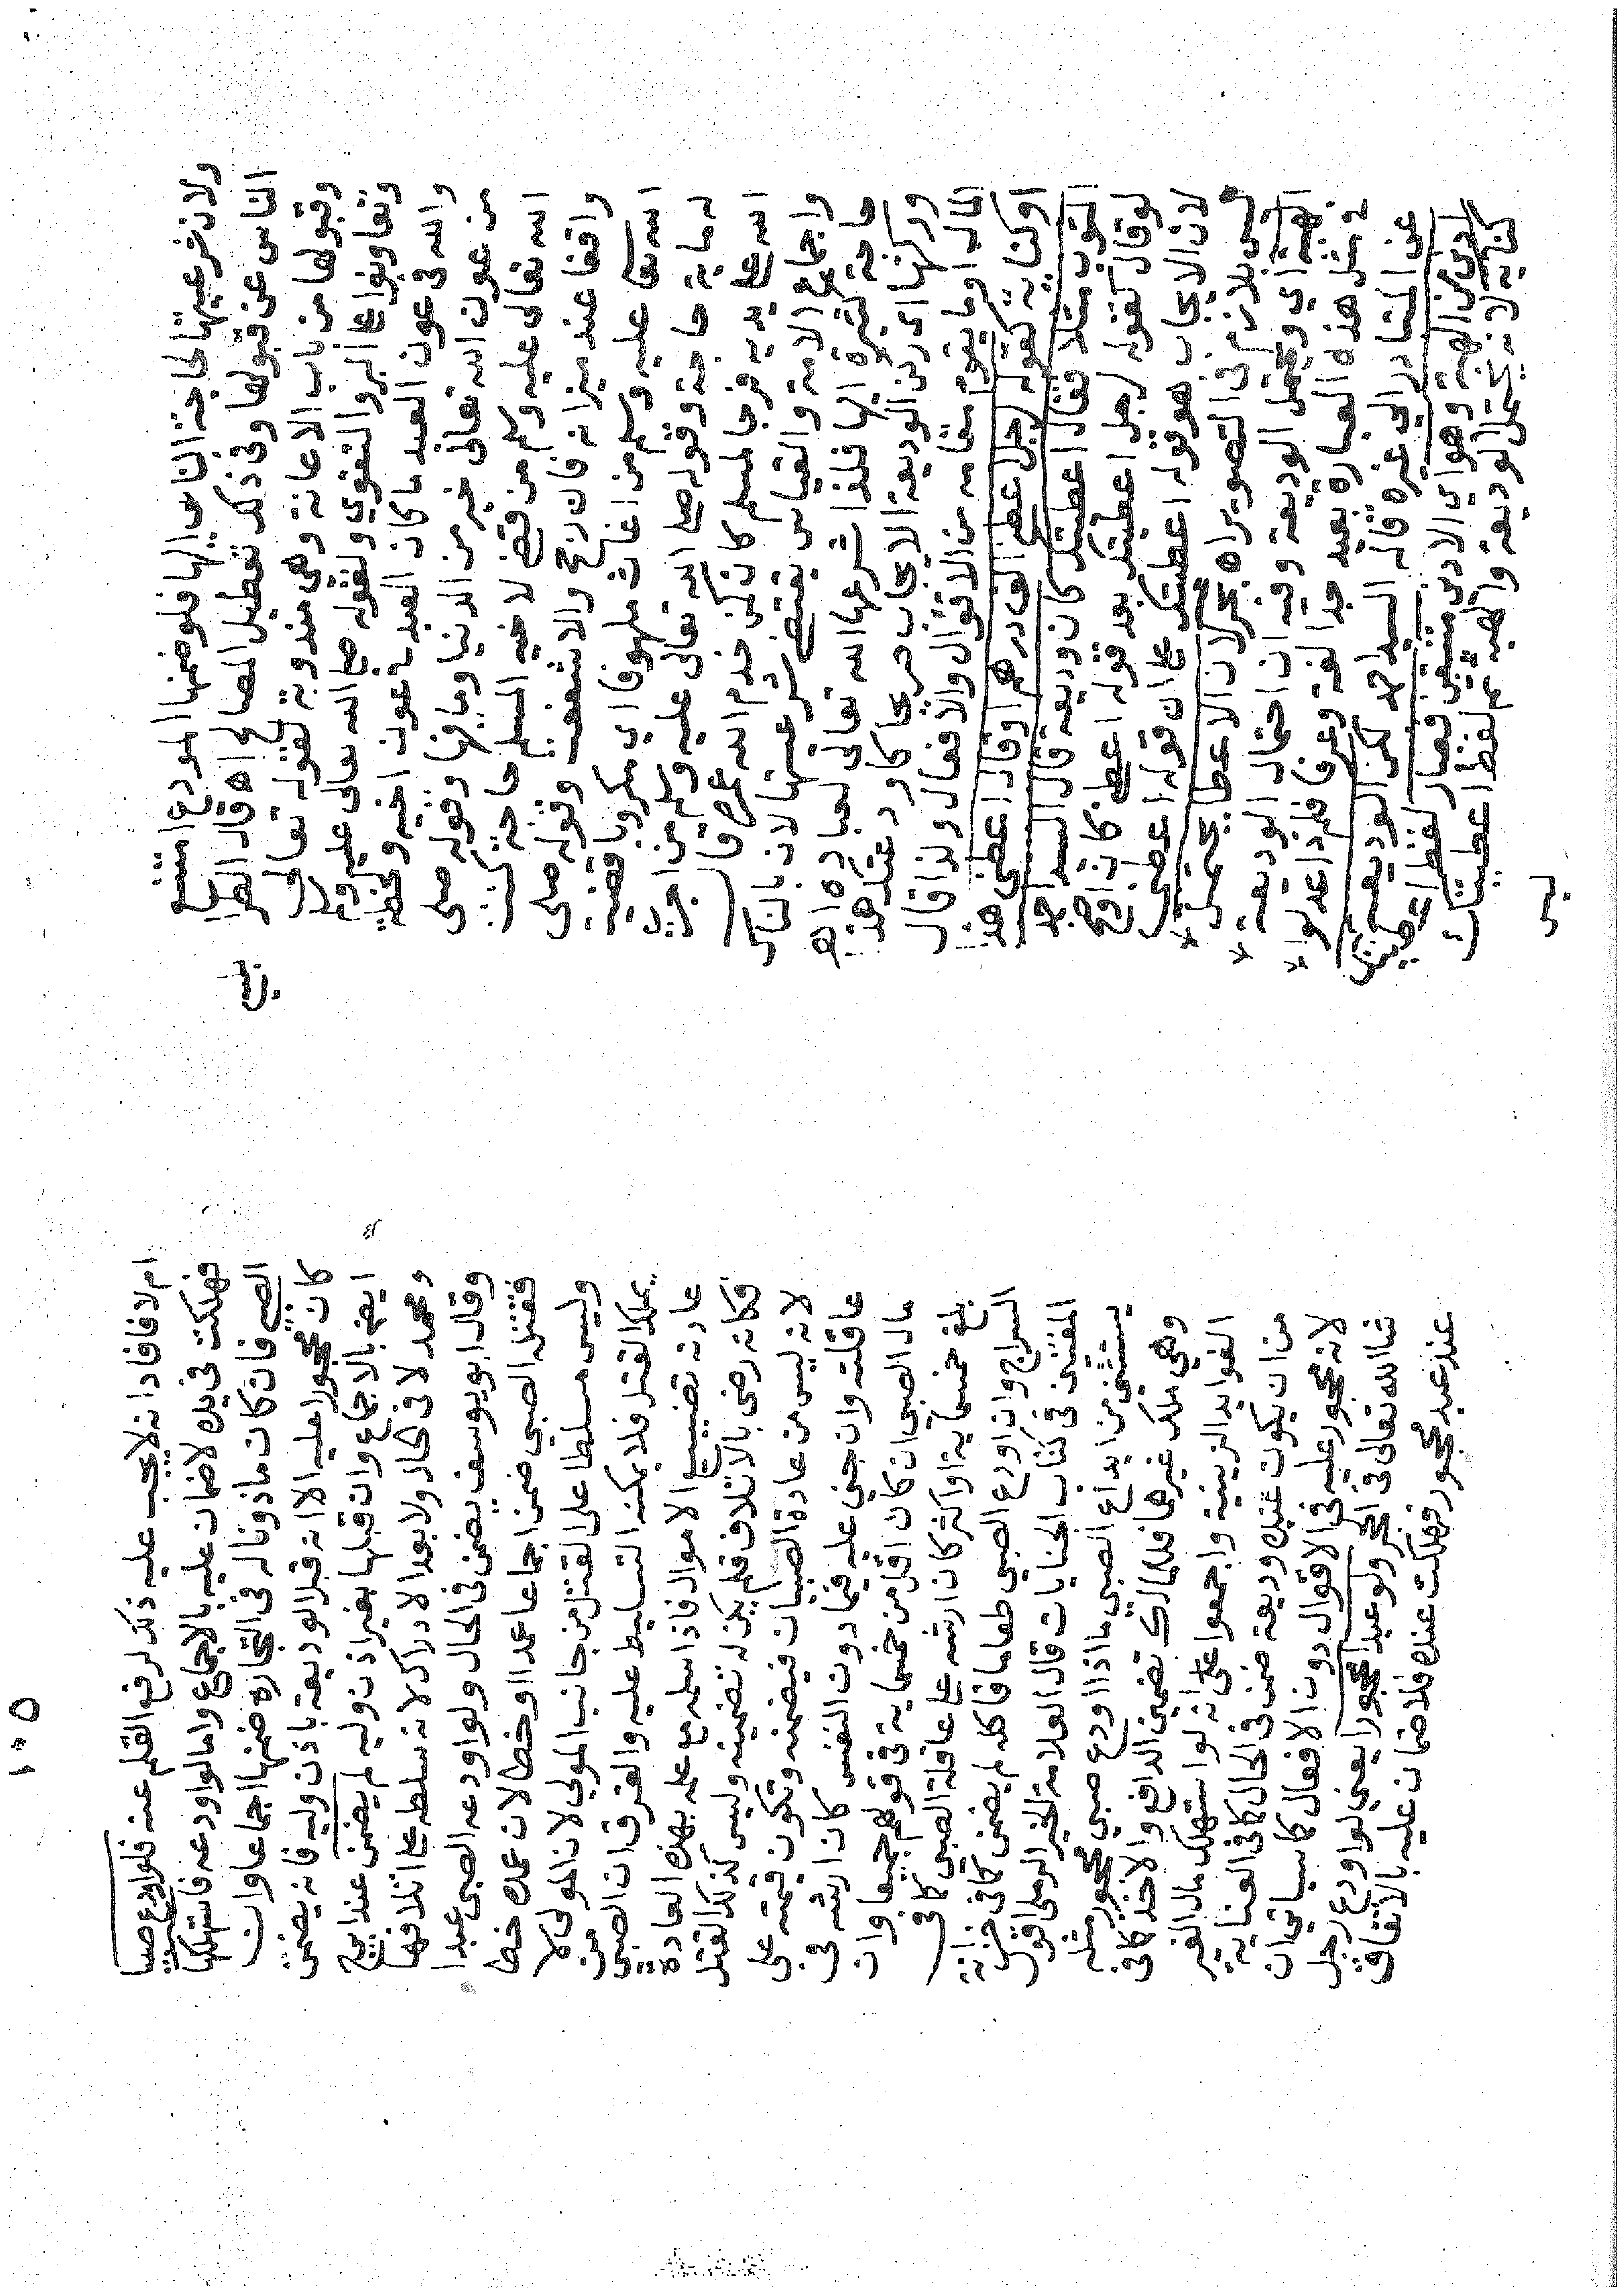 ولان شرعيتها لحاجة الناس اليها فلو ضمنها المودع امتنع
الناس عن قبولها وفي ذلك تعطيل المصالح اه قال
وقبولها من باب الاعانة وهي مندوبة لقوله تعالى
وتعاونوا على البر والتقوي ولقوله صلى الله تعالى عليه وسلم
والله في عون العبد ما كان العبد في عون اخيه ولحظة
من عون الله تعالى خير من الدنيا وما فيها وقوله صلى
الله تعالى عليه وسلم من قضى لاخيه المسلم حاجة كنت
واقفا عند ميزانه فان رجح والا شفعت وقوله صلى
الله تعا عليه وسلم من اغاث ملهوفا اي مكروبا قضيت
له ماية حاجة وقوله صلى الله تعالى عليه وسلم من اجرى
الله على يديه فرجا لمسلم كان كمن خدم الله عمره قال
واجماع الامة والقياس يقتضي شرعيتها لان بالناس
حاجة كثيرة اليها فلذا شرعها الله تعالى لعباده اه
وركنها اي ركن الوديعة الايجاب صريحا كاودعتك هذا
المال او ما يقوم مقامه من الاقوال والافعال ولذا قال
او كناية كقوله لرجل اعطني الف درهم او قال اعطني هذا
الثوب مثلا فقال اعطيتك كان وديعة قال السيد احمد
لو قال كقوله لرجل اعطيتك بعد قوله اعطني كان اوضح
لان الايجاب هو قوله اعطيتك على ان قوله اعطني
ليس بلازم في التصوير اه بحر لان الاعطا يحتمل
الهبة اي ويحتمل الوديعة وفيه ان احتمال الوديعة
في مثل هذه العبارة بعيد جدا لغة وعرفا فلذا عدلوا
عن المتبادر الي غيره قاله السيد احمد لكن الوديعة
ادنى من الهبة وهو اي الادنى متيقن فصار لفظ اعطيتك
كناية لانه يحتمل الوديعة والهبة ثم لفظ اعطيتك
ليس
١٠٥
ام لا فافاد انه لا يجب عليه ذكر لرفع القلم عنه فلو اودع صبيا
فهلكت في يده لا ضمان عليه بالاجماع واما لو اودعه فاستهلكها
الصبي فان كان ماذونا له في التجارة ضمنها اجماعا وان
كان محجورا عليه الا انه قبل الوديعة باذن وليه فانه يضمن
ايضا بالاجماع وان قبلها بغير اذن وليه لم يضمن عند ابي ح
ومحمد لا في الحال ولا بعد الادراك لانه سلطه على اتلافها
وقال ابو يوسف يضمن في الحال ولو اودعه الصبي عبدا
فقتله الصبي ضمن اجماعا عمدا او خطا لان عمده خطا
وليس مسلطا على القتل من جانب المولي لان المولى لا
يملك القتل فلا يمكنه التسليط عليه والفرق ان الصبي من
عادته تضييع الاموال فاذا سلمه مع علمه بهذه العادة
فكانه رضى بالاتلاف فلم يكن له تضمينه وليس كذلك القتل
لانه ليس من عادة الصبيان فيضمنه وتكون قيمته على
عاقلته وان جني عليه فيما دون النفس كان ارشه في
مال الصبى ان كان اقل من خمسماية في قولهم جميعا وان
بلغ خمسماية او اكثر كان ارشه على عاقلة الصبي كما في
السراج وان اودع الصبي طعاما فاكله لم يضمن كما في خزانة
المفتين في كتاب الجنايات قال العلامة الخير الرملي اقول
يستثني من ايداع الصبي ما اذا اودع صبي محجور مثله
وهي ملك غيرهما فللمالك تضمين الدافع والاخذ كما في
الفوايد الزينية واجمعوا على انه لو استهلك مال الغير
من ان يكون عنده وديعة ضمن في الحال كما في العناية
لانه محجور عليه في الاقوال دون الافعال كما سياتي ان
شا الله تعالى في الحجر ولو عبدا محجورا يعني لو اودع رجل
عند عبد محجور فهلكت عنده فلا ضمان عليه بالاتفاق